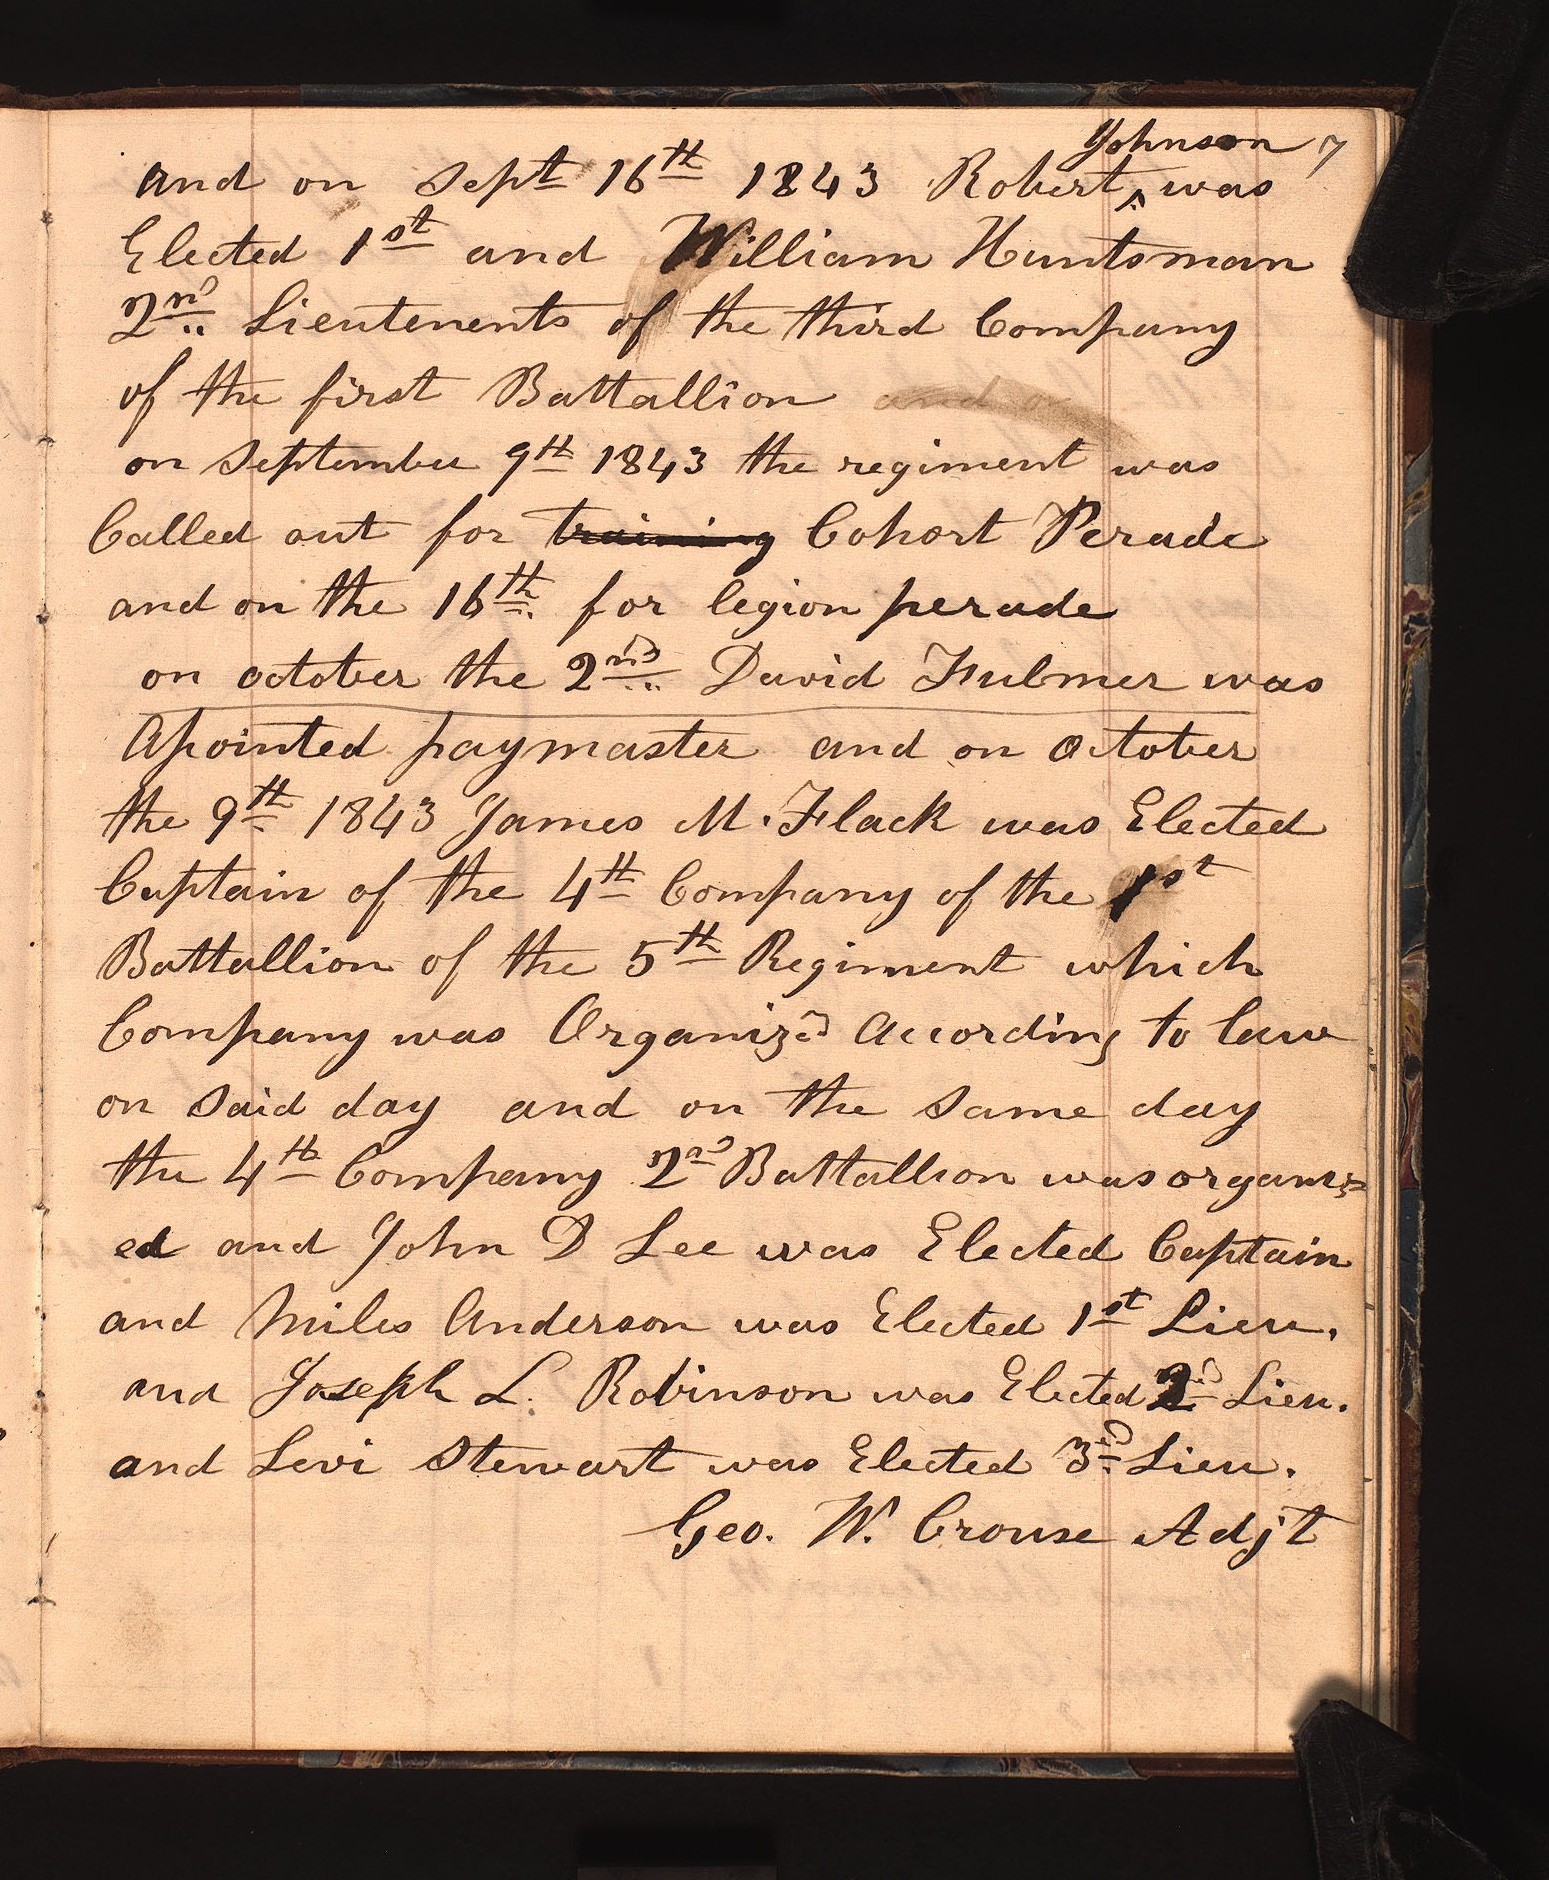 Johnson 7
and on Sept 16th 1843 Robert ^ was
Elected 1st and William Huntsman
2nd Lieutenents of the third Company
of the first Battallion and o
on September 9th 1843 the regiment was
Called out for training Cohort Perade
and on the 16th for legion perade
on october the 2nd David Fulmer was
Apointed paymaster and on october
the 9th 1843 James M. Flack was Elected
Captain of the 4th Company of the 1st
Battallion of the 5th Regiment which
Company was Organiz'd According to law
on Said day and on the Same day
the 4th Company 2nd Battallion was organiz=
ed and John D Lee was Elected Captain
and Miles Anderson was Elected 1st Lieu.
and Joseph L. Robinson was Elected 2d Lieu.
and Levi Stewart was Elected 3rd Lieu.
Geo. W. Crouse Adjt